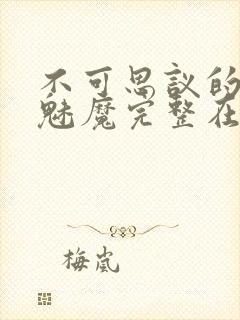 不可思议的
魅魔完整在
梅岚